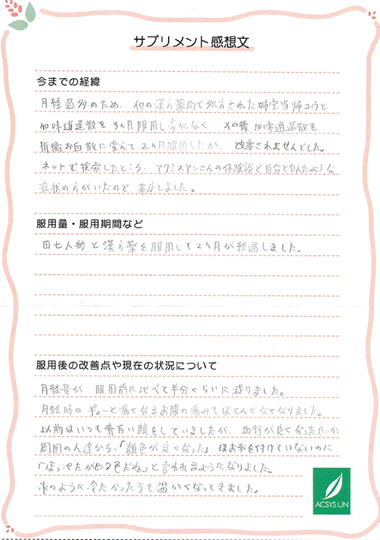 サプリメント感想文
今までの経緯
月経過多のため、他の漢方薬局で処方された婦宝当帰コウと
加味逍遥散を3ヵ月服用し変化なく その後加味逍遥散を
に変えて2ヵ月服用したが、改善されませんでした。
ネットで検索したところ、アクシスアンさんの体験談で自分と似たような
症状の方がいたので来店しました。
服用量・服用期間など
田七人参と漢方薬を服用して2ヶ月が経過しました。
服用後の改善点や現在の状況について
月経量が 服用前に比べて半分くらいに減りました。
月経時のぎゅーと痛くなるお腹の痛みもほとんどなくなりました。
以前はいつも青白い顔をしていましたが、血行が良くなったせいか
周囲の人達から、「顔色が良くなった」 ほお紅を付けていないのに
「ほっぺたがピンク色だね」と言われるようになりました。
氷のように冷たかった手も温かくなってきました。
ACSYS UN